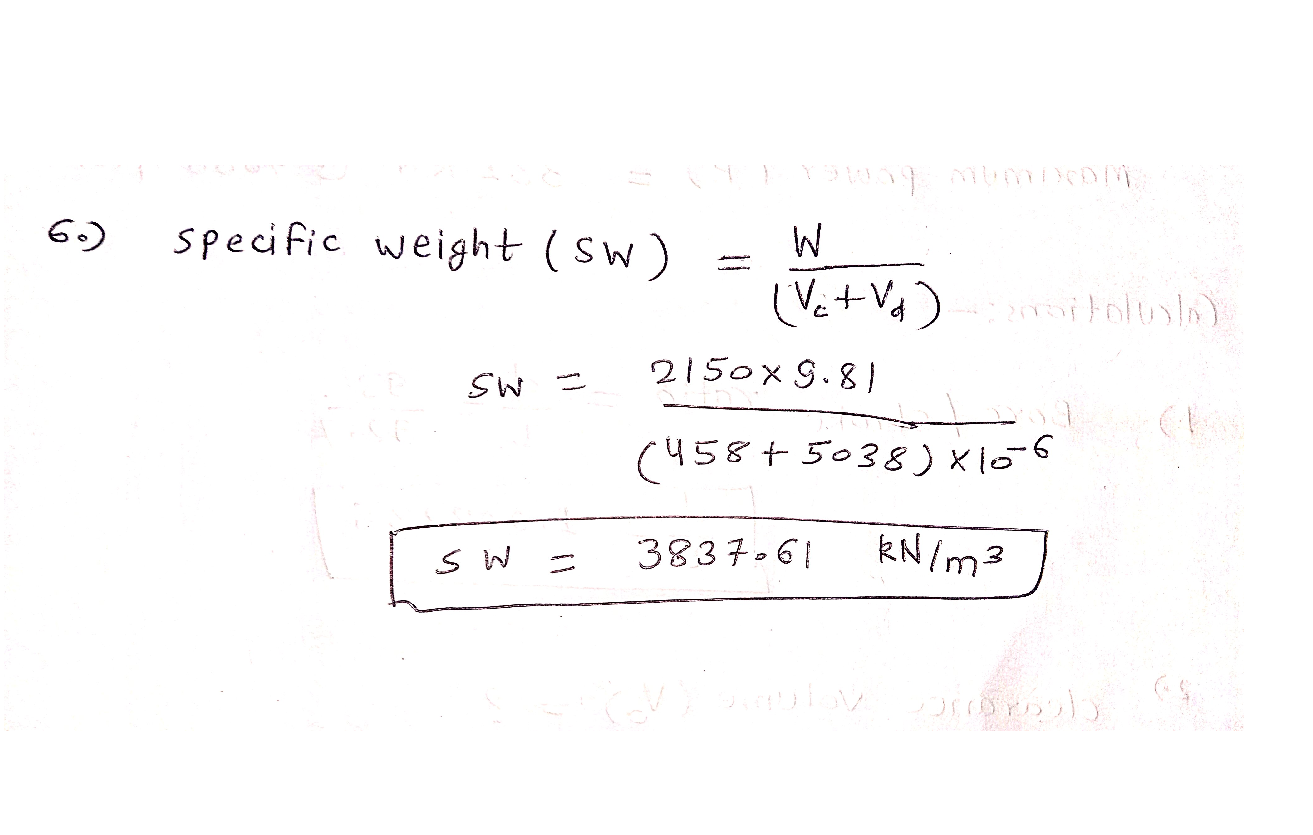 6.) specific weight (SW) = W / (Vc+Vd)
SW = 2150 x 9.81 / (458 + 5038) x 10^-6
SW = 3837.61 kN/m3